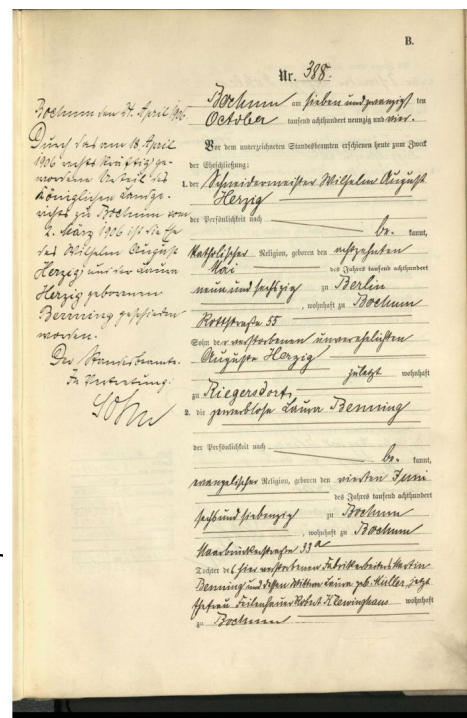 B.
Nr. 388.
Bochum am sieben und zwanzigsten
October tausend achthundert neunzig und vier.
Vor dem unterzeichneten Standesbeamten erschienen heute zum Zweck
der Eheschließung:
1. der Schneidermeister Wilhelm August
Herzig
der Persönlichkeit nach
be- kannt,
katholischer Religion, geboren den achtzehnten
Mai des Jahres tausend achthundert
neun und sechszig zu Berlin
, wohnhaft zu Bochum
Rottstraße 55
Sohn der verstorbenen unverehelichten
Auguste Herzig
zuletzt wohnhaft
zu Riegersdorf
2. die gewerblose Laura Benning
der Persönlichkeit nach
be- kannt,
evangelischer Religion, geboren den vierten Juni
des Jahres tausend achthundert
sechs und siebenzig zu Bochum
, wohnhaft zu Bochum
Maarbrückerstraße 33a
Tochter des hier verstorbenen Fabrikarbeiters Martin
Benning und dessen Wittwe Laura geb. Müller, jetzt
Ehefrau Feilenhauer Robert Klewinghaus wohnhaft
zu Bochum
Bochum den 21. April 1906
Durch das am 18. April
1906 rechtskräftig ge-
wordene Urteil des
Königlichen Landge-
richts zu Bochum vom
2. März 1906 ist die Ehe
des Wilhelm August
Herzig und der Laura
Herzig geborenen
Benning geschieden
worden.
Der Standesbeamte.
In Vertretung: